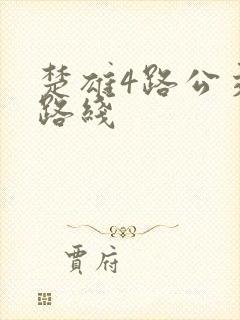 楚雄4路公
路线
贾府